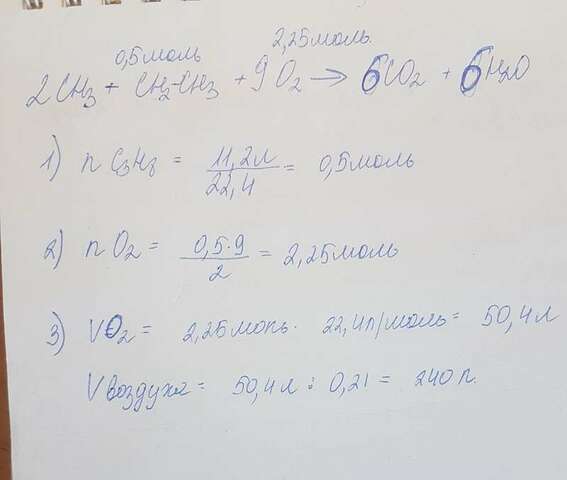 0,5моль 2,25моль.
2CH3 + CH2-CH3 + 9O2 → 6CO2 + 6H2O
1) n C3H8 = 11,2л / 22,4 = 0,5моль
2) n O2 = 0,5·9 / 2 = 2,25моль
3) VO2 = 2,25моль · 22,4л/моль = 50,4л
Vвоздуха = 50,4л : 0,21 = 240л.